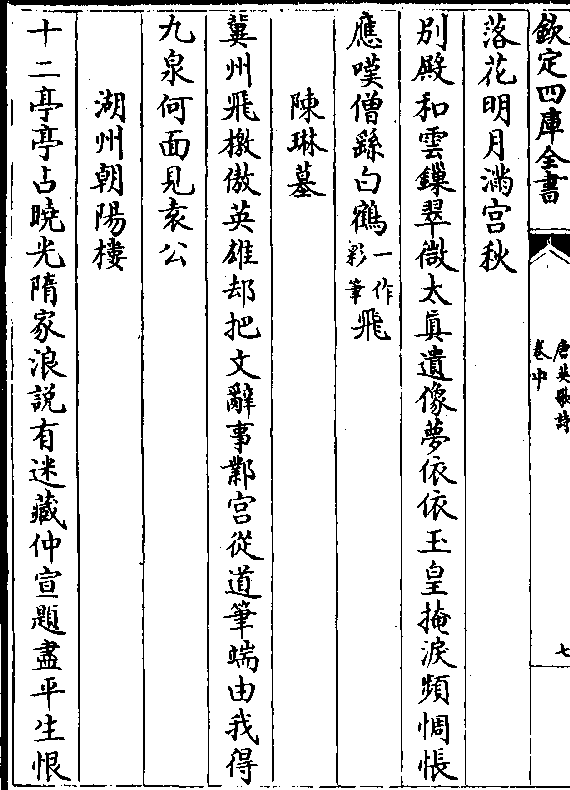 欽定四庫全書
唐英歌詩
卷中
七
落花明月滿宫秋
别殿和雲鏁翠微太真遺像夢依依玉皇掩淚頻惆悵
應嘆僧繇白鶴一作彩筆飛
陳琳墓
冀州飛檄傲英雄却把文辭事鄴宫從道筆端由我得
九泉何面見袁公
湖州朝陽樓
十二亭亭占曉光隋家浪説有迷藏仲宣題盡平生恨